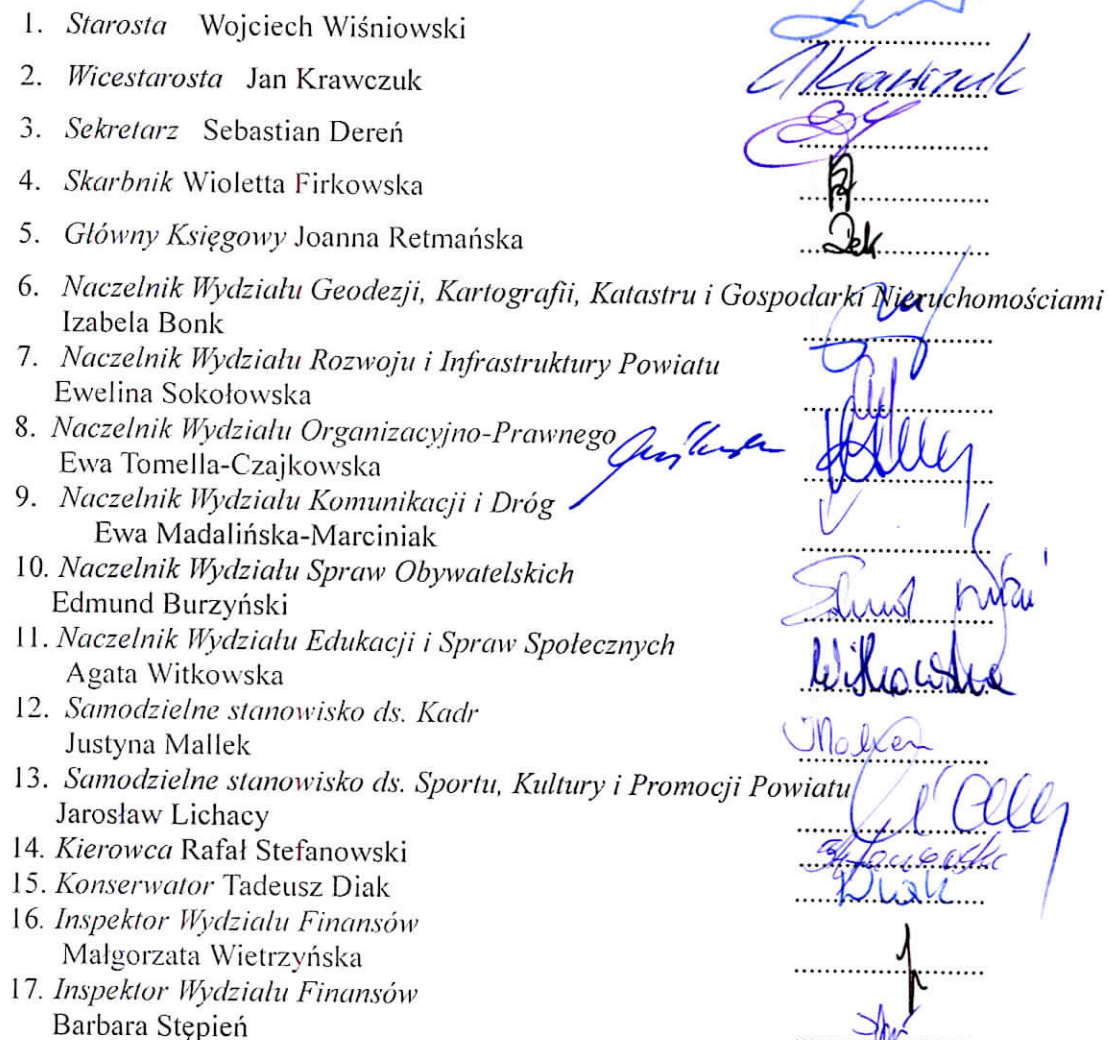 1. Starosta Wojciech Wiśniowski
2. Wicestarosta Jan Krawczuk
JKrawczuk
3. Sekretarz Sebastian Dereń
4. Skarbnik Wioletta Firkowska
5. Główny Księgowy Joanna Retmańska
6. Naczelnik Wydziału Geodezji, Kartografii, Katastru i Gospodarki Nieruchomościami
Izabela Bonk
7. Naczelnik Wydziału Rozwoju i Infrastruktury Powiatu
Ewelina Sokołowska
8. Naczelnik Wydziału Organizacyjno-Prawnego
Ewa Tomella-Czajkowska
9. Naczelnik Wydziału Komunikacji i Dróg
Ewa Madalińska-Marciniak
10. Naczelnik Wydziału Spraw Obywatelskich
Edmund Burzyński
11. Naczelnik Wydziału Edukacji i Spraw Społecznych
Agata Witkowska
Witkowska
12. Samodzielne stanowisko ds. Kadr
Justyna Mallek
13. Samodzielne stanowisko ds. Sportu, Kultury i Promocji Powiatu
Jarosław Lichacy
14. Kierowca Rafał Stefanowski
15. Konserwator Tadeusz Diak
Diak
16. Inspektor Wydziału Finansów
Małgorzata Wietrzyńska
17. Inspektor Wydziału Finansów
Barbara Stępień